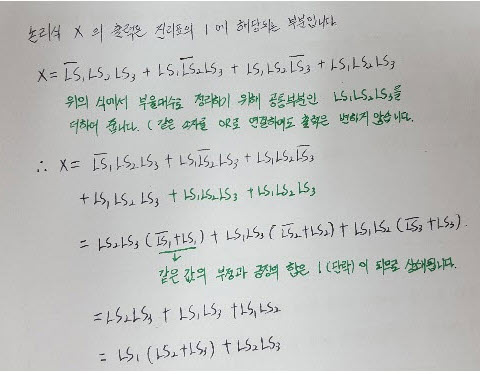 논리식 X 의 출력은 진리표의 1 에 해당되는 부분입니다
X = L̅S̅₁LS₂ LS₃ + LS₁L̅S̅₂LS₃ + LS₁LS₂L̅S̅₃ + LS₁LS₂LS₃
위의 식에서 부울대수로 정리하기 위해 공통부분인 LS₁LS₂LS₃를
더하여 줍니다. ( 같은 소자를 OR로 연결하여도 출력은 변하지 않습니다.
∴ X = L̅S̅₁LS₂LS₃ + LS₁L̅S̅₂LS₃ + LS₁LS₂L̅S̅₃
+ LS₁LS₂ LS₃ + LS₁LS₂LS₃ + LS₁LS₂LS₃
= LS₂LS₃ (L̅S̅₁+LS₁) + LS₁LS₃ (L̅S̅₂+LS₂) + LS₁LS₂ (L̅S̅₃ + LS₃).
같은 값의 부정과 긍정의 합은 1 (단락) 이 되므로 상쇄됩니다.
= LS₂LS₃ + LS₁LS₃ + LS₁LS₂
= LS₁ (LS₂+LS₃) + LS₂LS₃